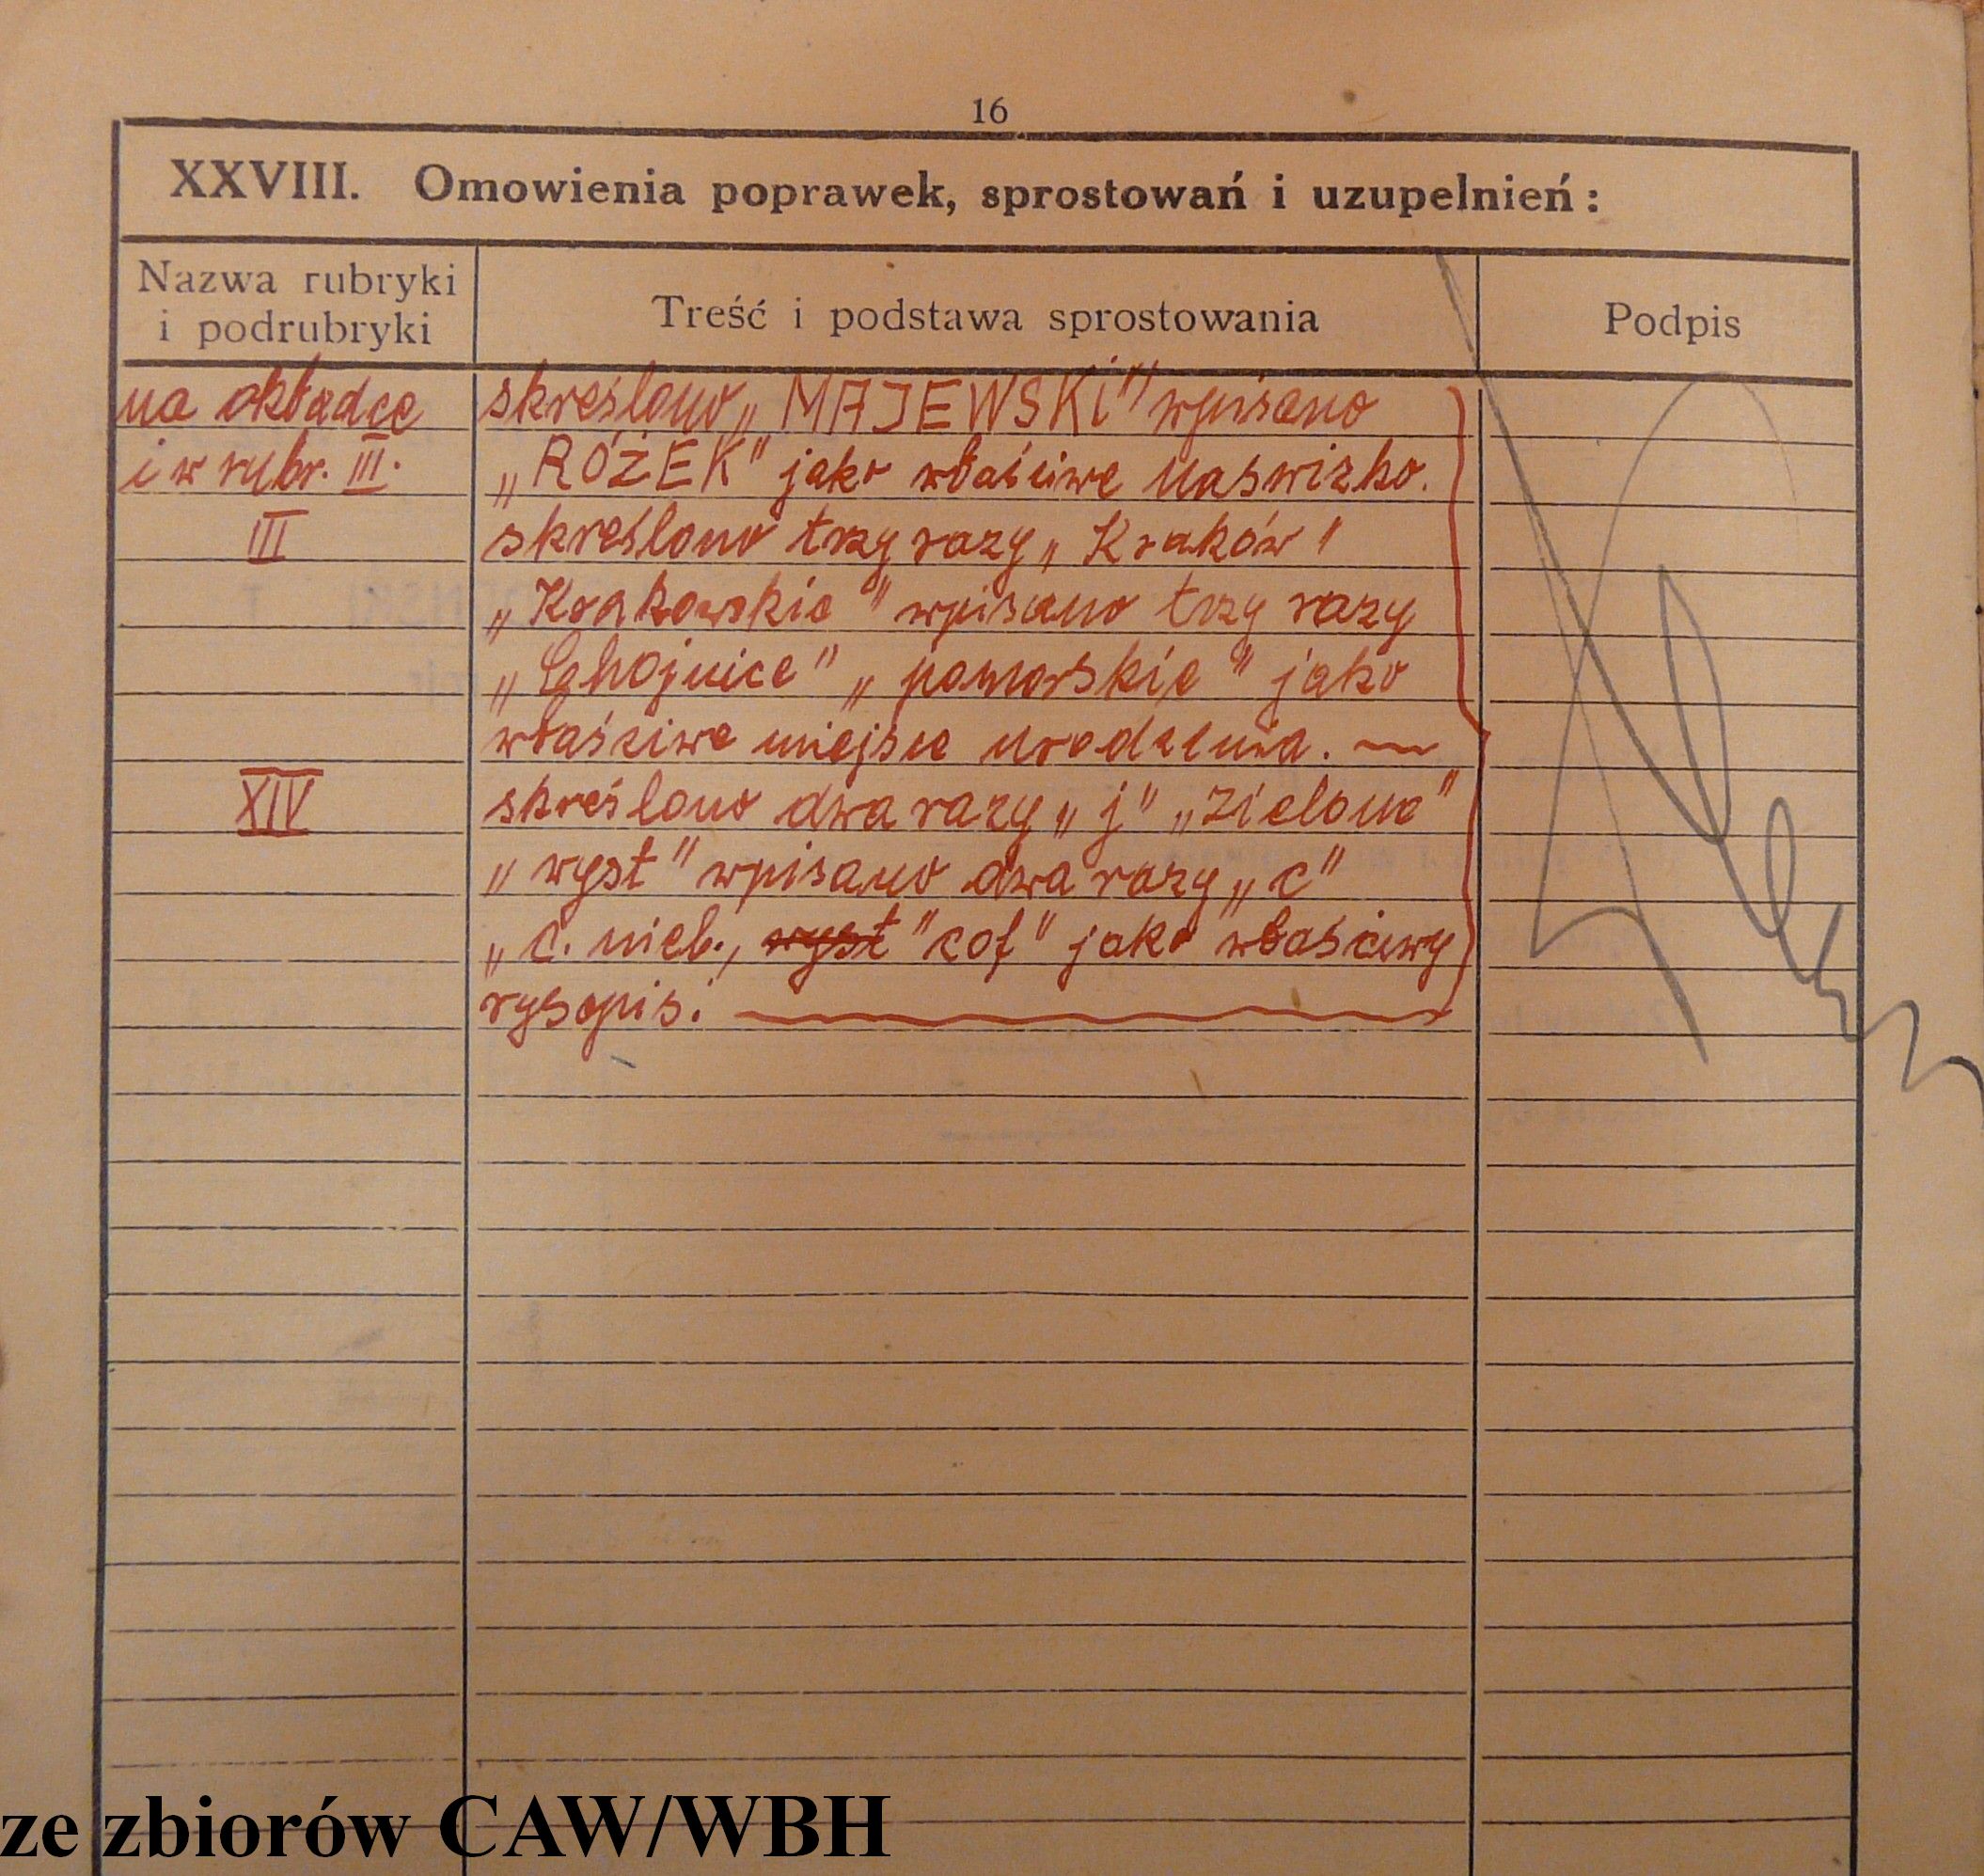 16
XXVIII. Omowienia poprawek, sprostowań i uzupelnień:
Nazwa rubryki
i podrubryki
Treść i podstawa sprostowania
Podpis
na okładce
i w rubr. III.
III
XIV
skreślono „MAJEWSKI" wpisano
„RÓŻEK" jako właściwe naswizko.
skreślono trzy razy „Kraków"
„Krakowskie" wpisano trzy razy
„Chojnice" „pomorskie" jako
właściwe miejsce urodzenia.
skreślono dwa razy „j" „zielone"
„wyst" wpisano dwa razy „c"
„c. nieb., wyst "cof" jako właściwy
rysopis.
ze zbiorów CAW/WBH